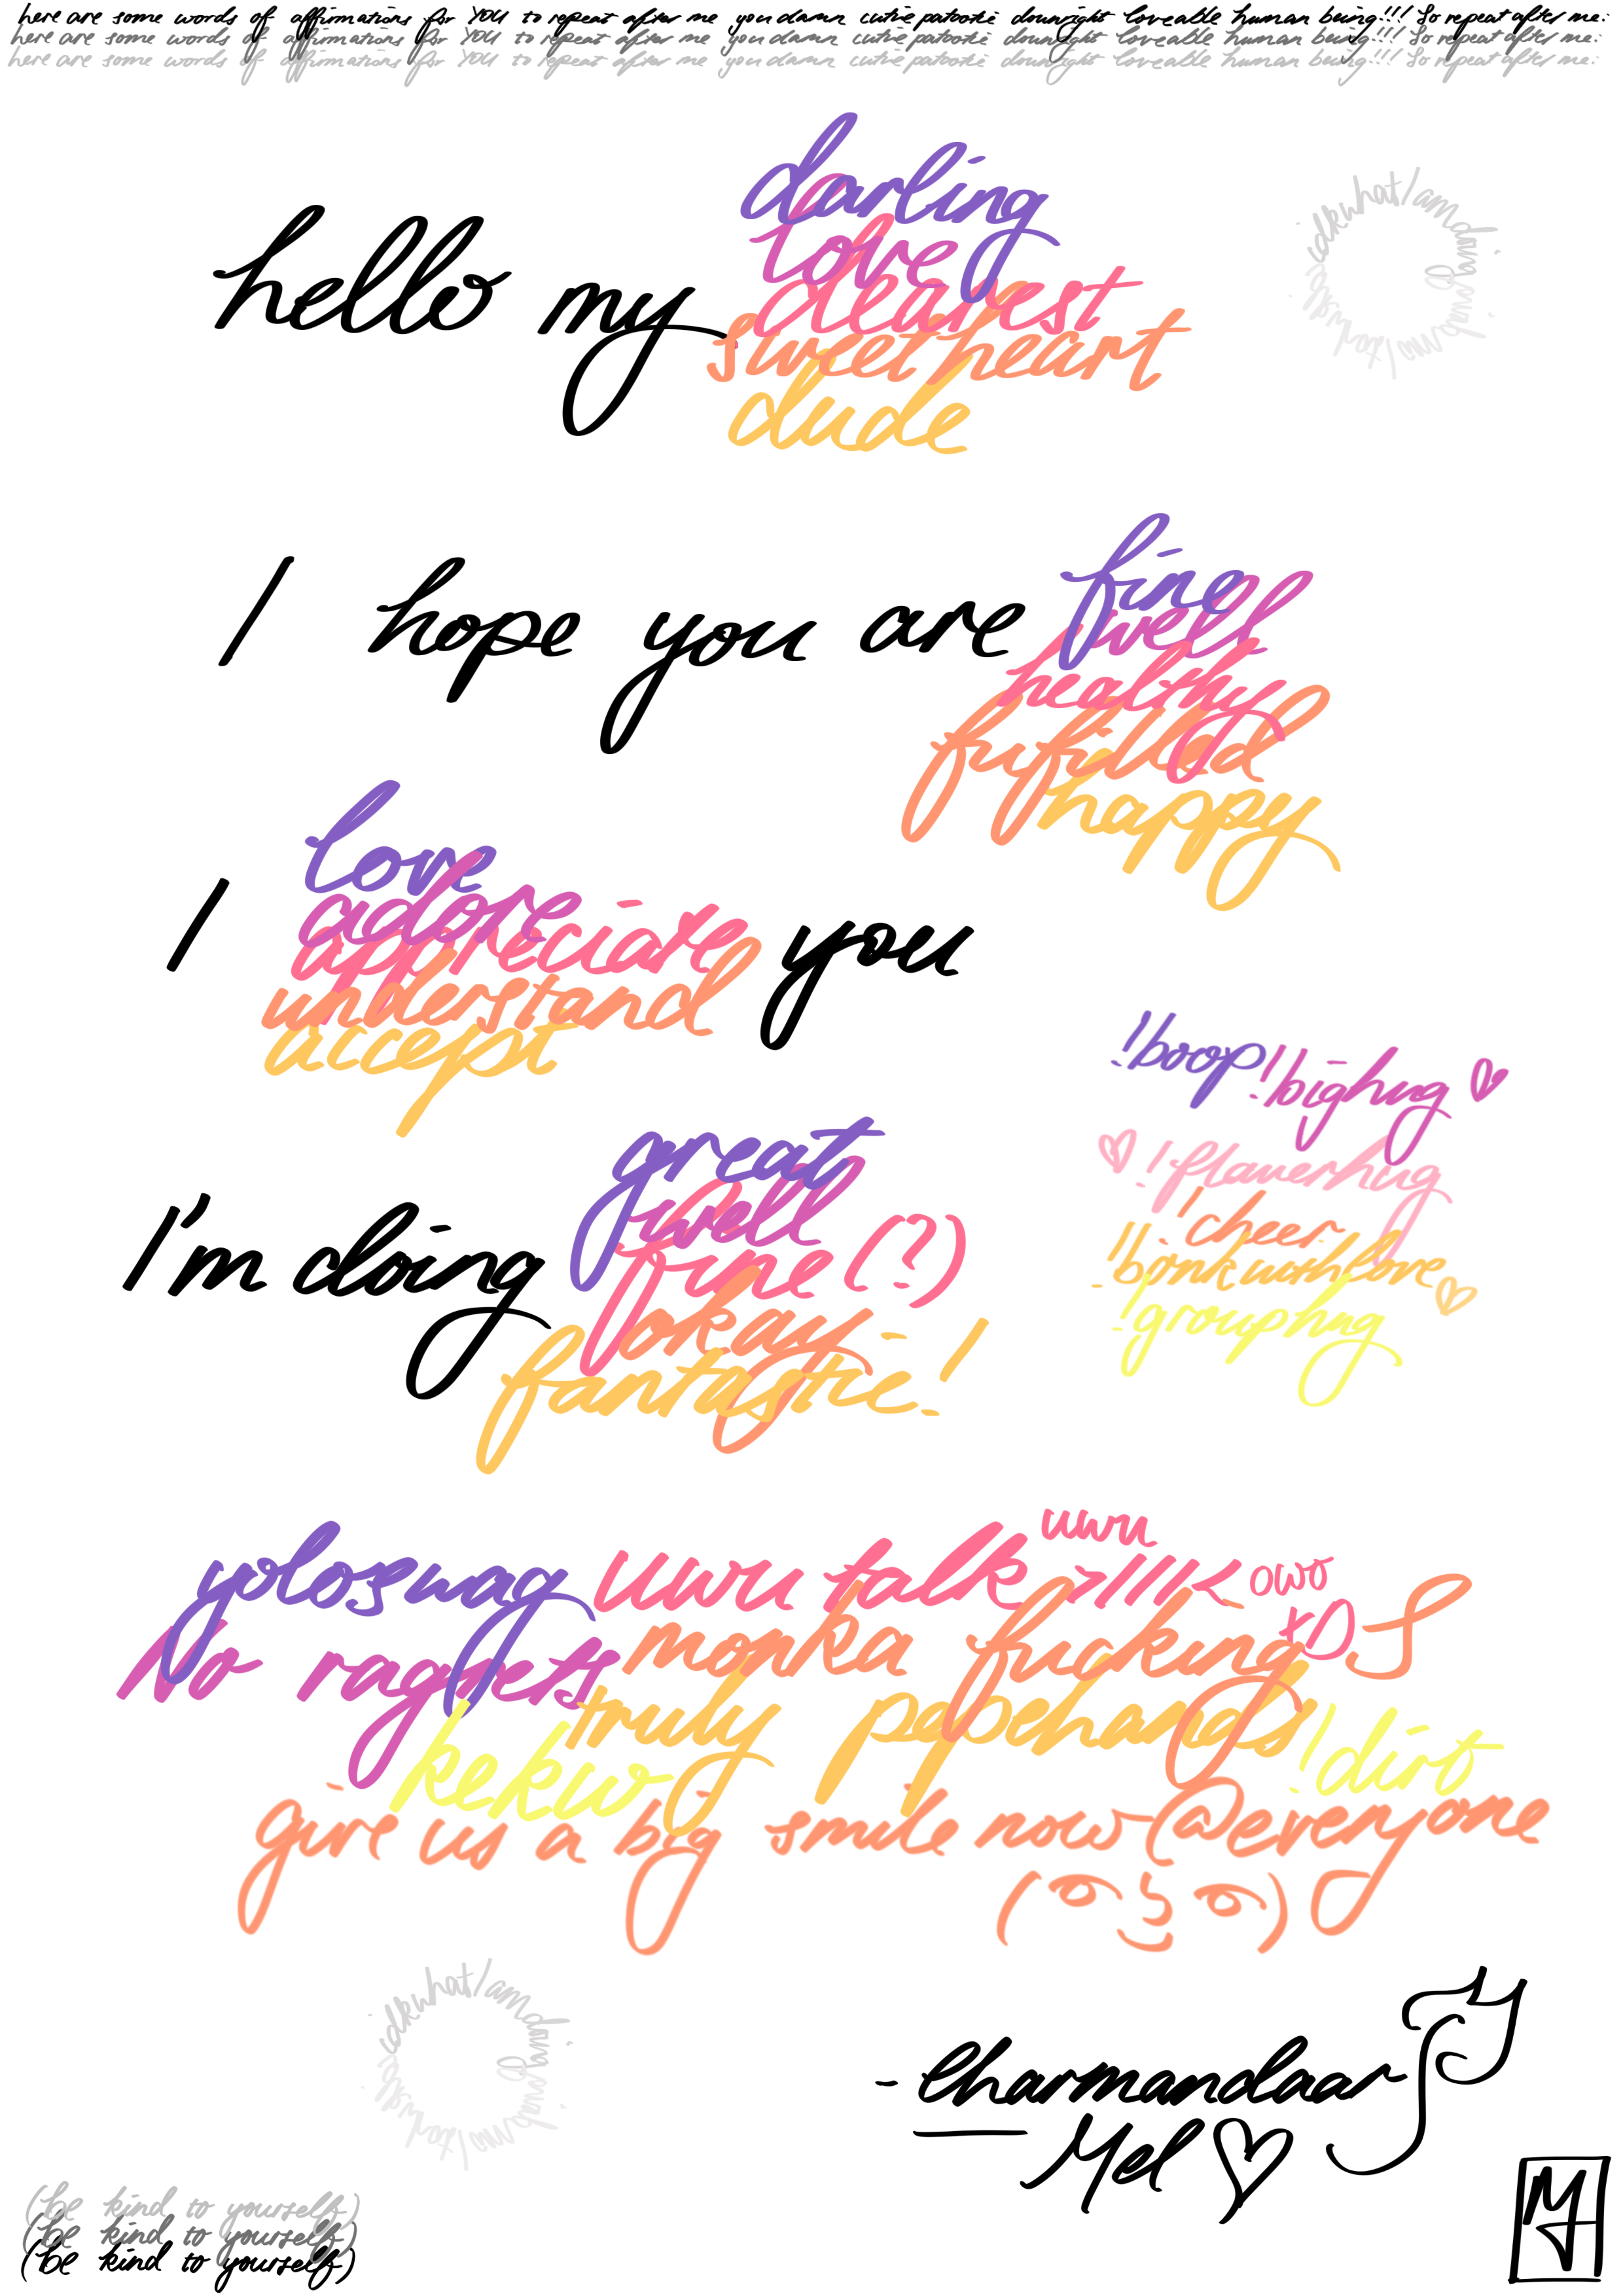 here are some words of affirmations for YOU to repeat after me you damn cutie patootie downright loveable human being!!! So repeat after me:
here are some words of affirmations for YOU to repeat after me you damn cutie patootie downright loveable human being!!! So repeat after me:
here are some words of affirmations for YOU to repeat after me you damn cutie patootie downright loveable human being!!! So repeat after me:
darling
love
hello my dearest
sweetheart
dude
idkwhatIamdoing
fine
I hope you are well
healthy
fufilled
happy
love
adore
I appreciate you
understand
accept
!boop !bighug
!flowerhug
!cheer
!bonkwithlove
!grouphug
great
well
I'm doing fine (?)
okay
fantastic!
yoloswag uwu talk uwu >///< owo xD
No ragrets monka fucking S
truly pepehands
kekw !dirt
give us a big smile now @everyone
( ͡° ͜ʖ ͡°)
idkwhatIamdoing
- Charmandaar
Mel
(be kind to yourself)
(be kind to yourself)
(be kind to yourself)